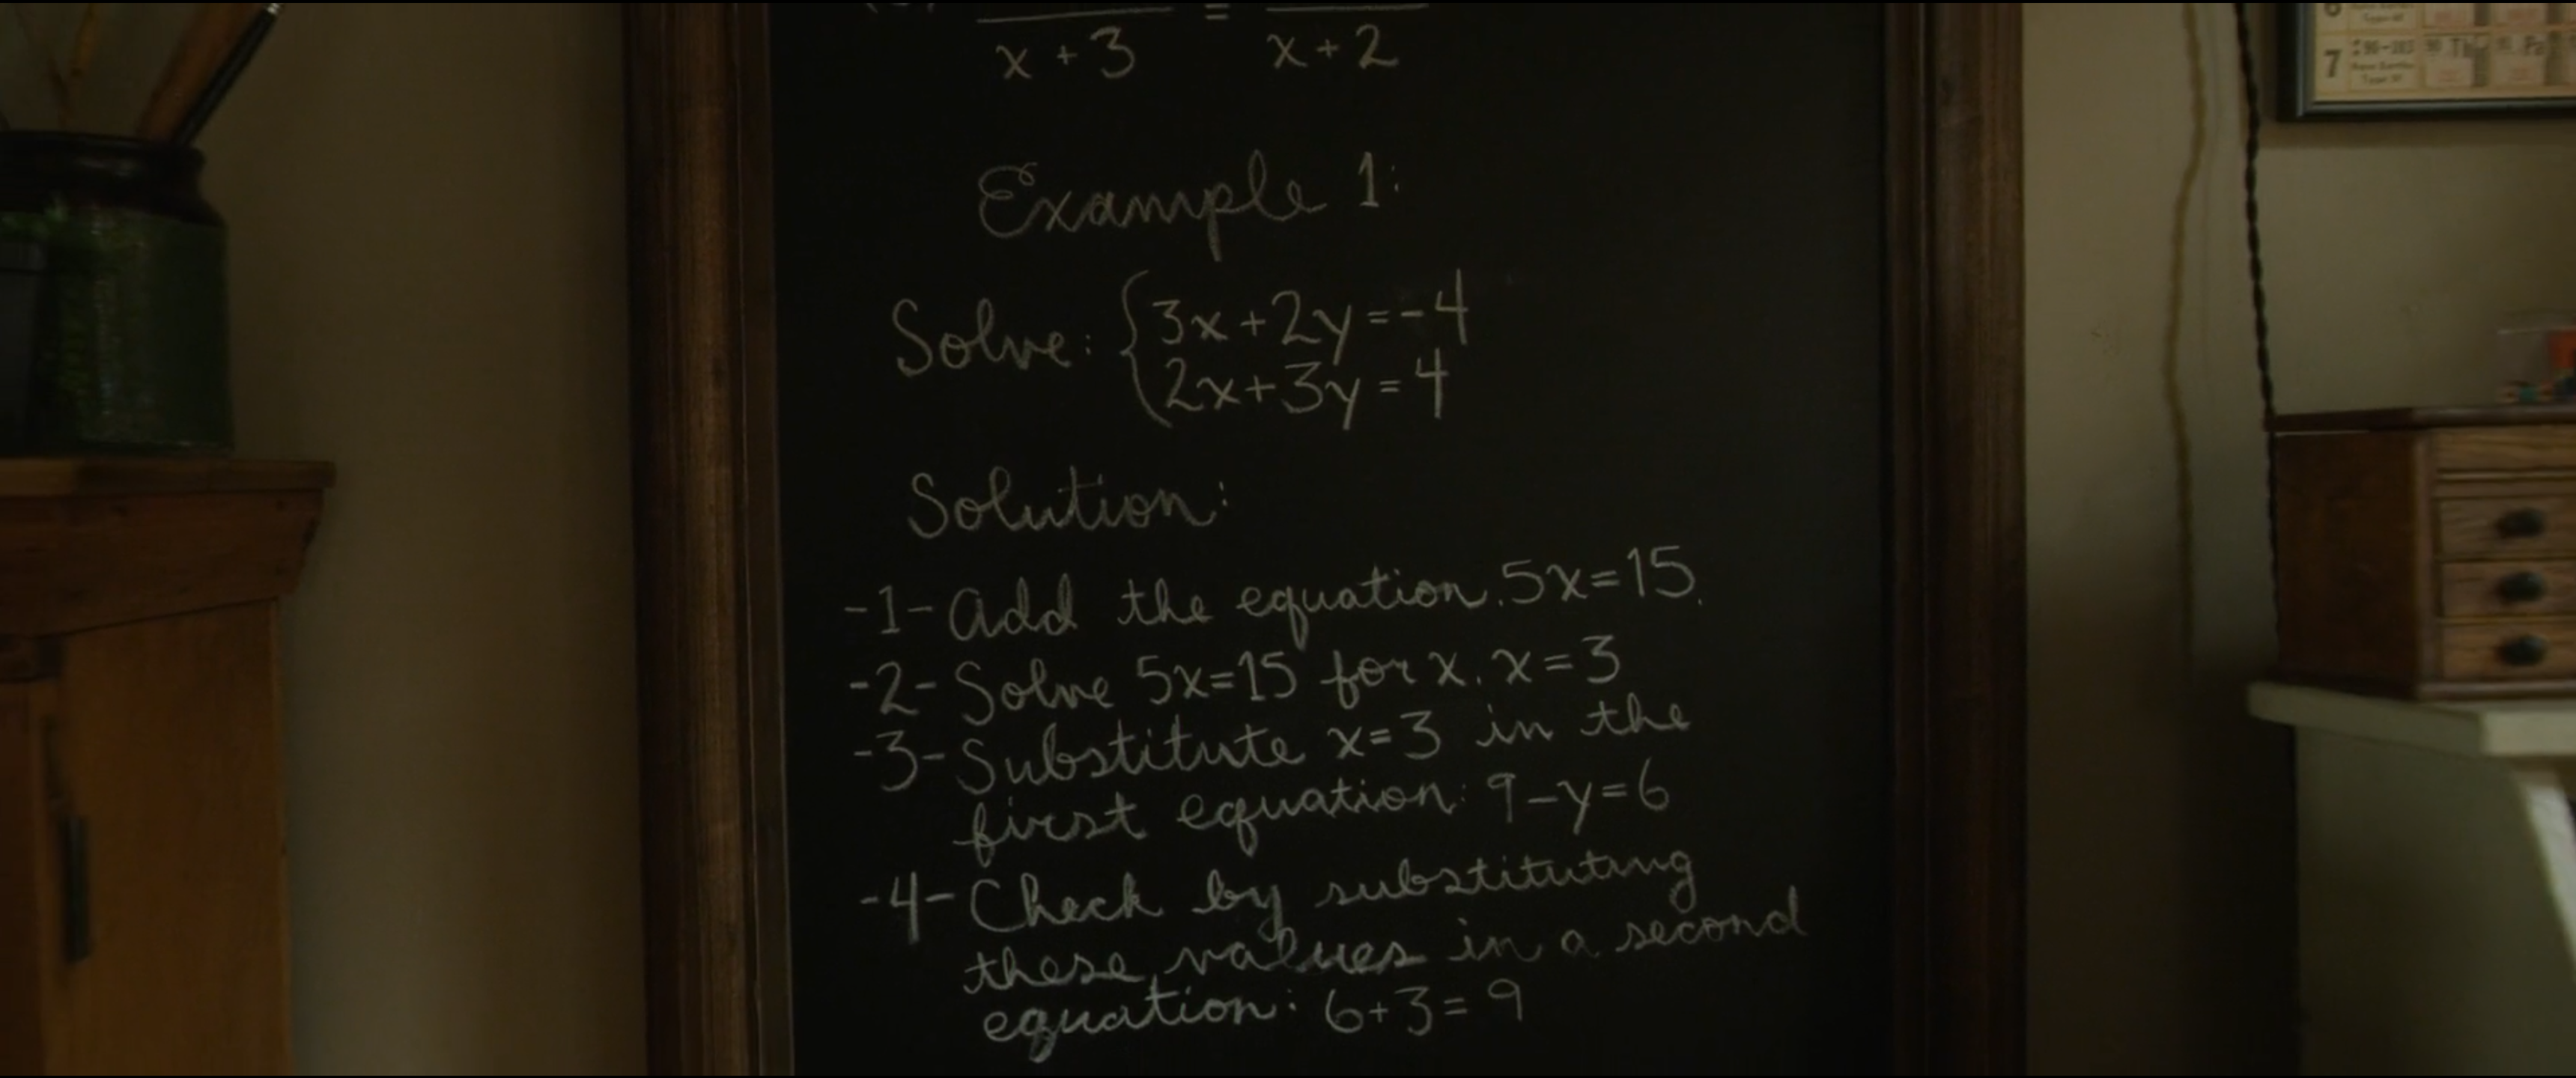 x + 3 = x + 2
Example 1:
Solve: {3x + 2y = -4
2x + 3y = 4
Solution:
-1- Add the equation. 5x = 15.
-2- Solve 5x = 15 for x. x = 3
-3- Substitute x = 3 in the
first equation: 9 - y = 6
-4- Check by substituting
these values in a second
equation: 6 + 3 = 9
7
90 Th
91 Pa